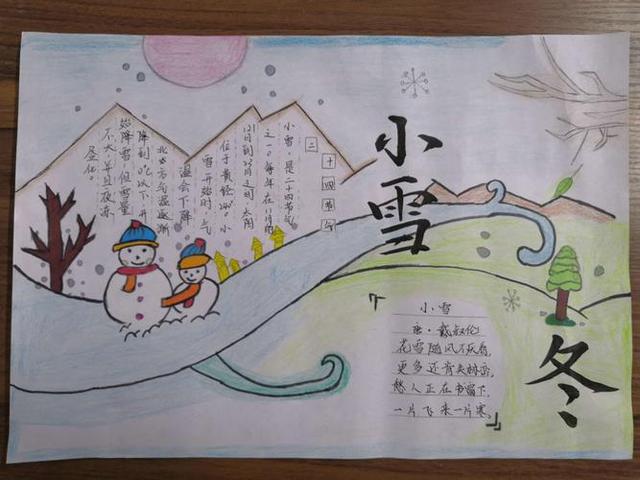 小雪
冬
二十四节气
小雪，是二十四节气
之一。每年在11月
日到23日之间，太阳
位于黄经。小
雪开始时，气
温会下降。
北方气温逐渐
降到0℃以下，开
始降雪，但雪量
不大，并且夜冻
昼化。
小雪
唐·戴叔伦
花雪随风不厌看，
更多还肯失林峦。
愁人正在书窗下，
一片飞来一片寒。